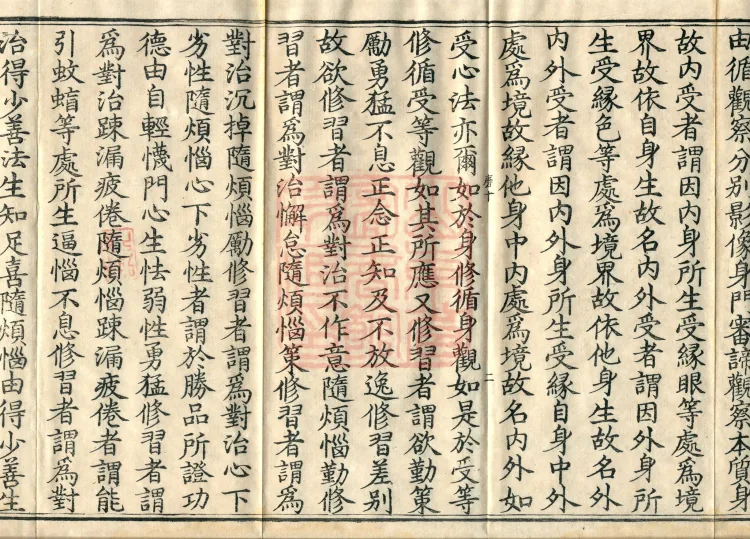 由循觀察分別影像身門審諦觀察本質身
故内受者謂因内身所生受縁眼等處爲境
界故依自身生故名内外受者謂因外身所
生受縁色等處爲境界故依他身生故名外
内外受者謂因内外身所生受縁自身中外
處爲境故縁他身中内處爲境故名内外如
受心法亦爾如於身修循身觀如是於受等
修循受等觀如其所應又修習者謂欲勤策
勵勇猛不息正念正知及不放逸修習差別
故欲修習者謂爲對治不作意隨煩惱勤修
習者謂爲對治懈怠隨煩惱策修習者謂爲
對治沉掉隨煩惱勵修習者謂爲對治心下
劣性隨煩惱心下劣性者謂於勝品所證功
德由自輕懱門心生怯弱性勇猛修習者謂
爲對治踈漏疲倦隨煩惱踈漏疲倦者謂能
引蚊蝱等處所生逼惱不息修習者謂爲對
治得少善法生知足喜隨煩惱由得少善生